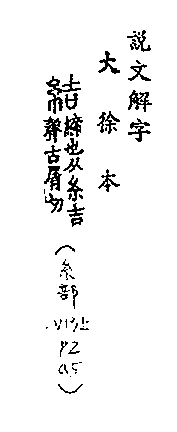 説文解字
大徐本
結締也从糸吉
聲古屑切
(糸部
P2
a5)